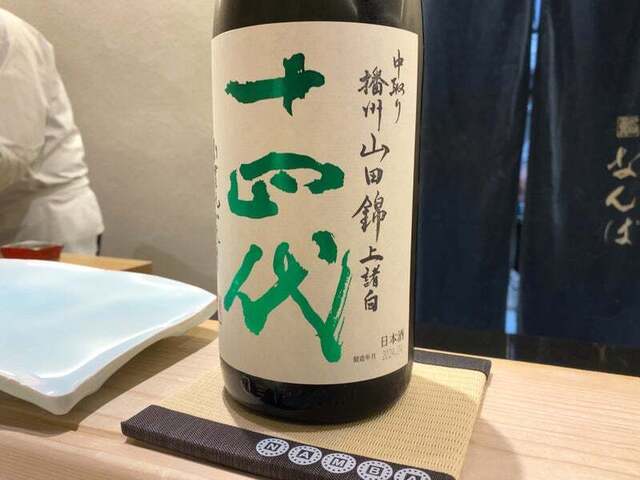 十四代
中取り
播州山田錦
上諸白
日本酒
製造年月
なんば
NAMBA